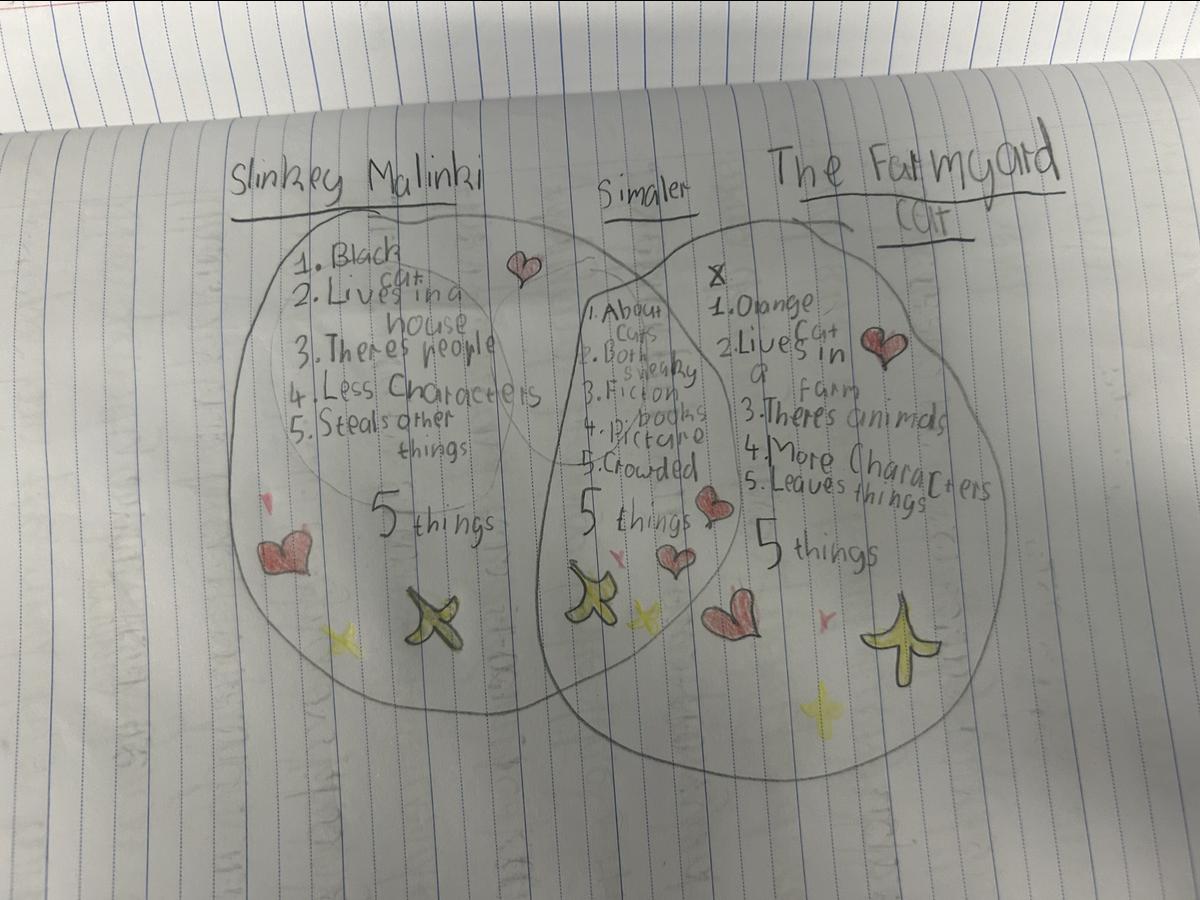 Slinkey Malinki
1. Black
cat
2. Lives in a
house
3. Theres people
4. Less Characters
5. Steals other
things
5 things
Simaler
1. About
cats
2. Both
sneaky
3. Ficton
books
4. Picture
5. Crowded
5 things
The Farmyard
cat
1. Orange
cat
2. Lives in
a
farm
3. There's animals
4. More Characters
5. Leaves things
5 things